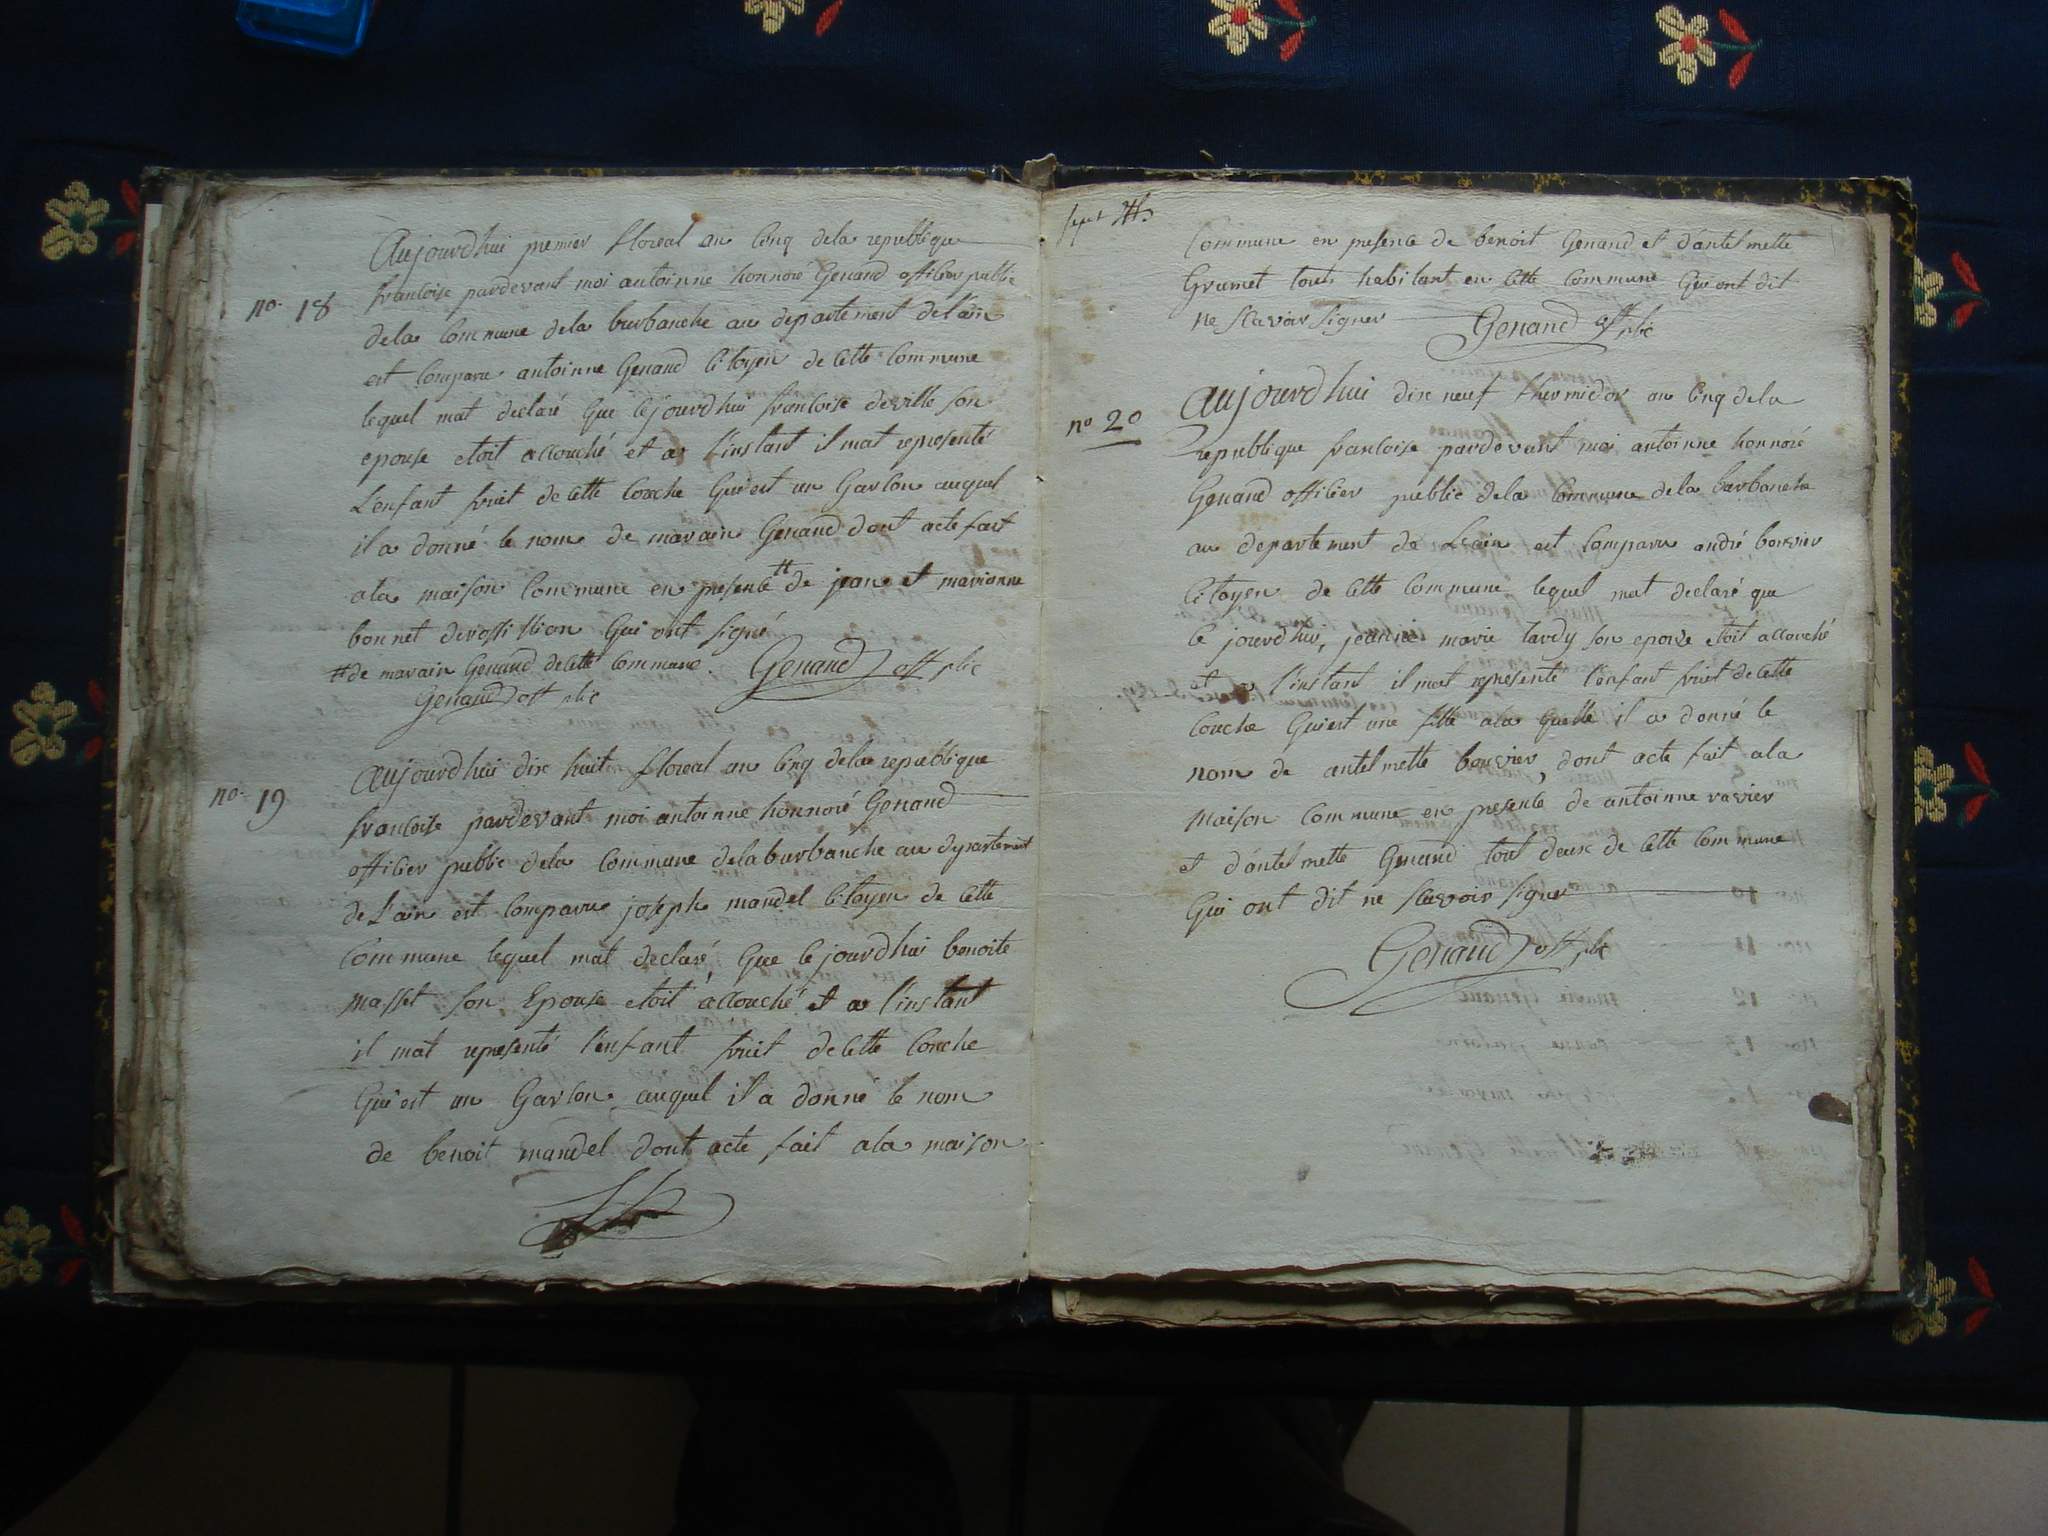 no. 18
Aujourd'hui premier floreal an cinq dela republique
francoise pardevant moi antoinne honnoré Genand officier public
dela Commune dela burbanche au departement de l'ain
est Comparu antoinne Genand citoyen de cette Commune
lequel mat declaré que cejourd'hui francoise deville son
epouse etoit accouché et a l'instant il mat representé
L'enfant fruit de cette Couche Qui est un Garcon auquel
il a donné le nom de marain Genand dont acte fait
ala maison Commune en presence # de jean et marianne
bonnet de rossillion Qui ont signé
# de marain Genand de cette Commune. Genand off plic
Genand off plic
no. 19
Aujourd'hui dix huit floreal an cinq dela republique
francoise pardevant moi antoinne honnoré Genand
officier public dela Commune dela burbanche au departement
de L'ain est Comparu joseph mandel citoyen de cette
Commune lequel mat declaré, Que cejourd'hui benoite
masset son Epouse etoit accouché et a l'instant
il mat representé l'enfant fruit de cette Couche
Qui est un Garcon auquel il a donné le nom
de benoit mandel dont acte fait ala maison
sept
Commune en presence de benoit Genand et d'antelmette
Grumet tous habitant en cette Commune Qui ont dit
ne scavoir signer Genand off plic
no 20
Aujourd'hui dix neuf thermidor an cinq dela
republique francoise pardevant moi antoinne honnoré
Genand officier public dela Commune dela burbanche
au departement de L'ain est Comparu andré bouvier
citoyen de cette Commune lequel mat declaré que
ce jourd'hui, jeanne marie tardy son epouse etoit accouché
et a l'instant il mat representé l'enfant fruit de cette
Couche Qui est une fille ala quelle il a donné le
nom de antelmette bouvier, dont acte fait ala
maison Commune en presence de antoinne ravier
et d'antelmette Genand tout deux de cette Commune
Qui ont dit ne scavoir signer
Genand off plic